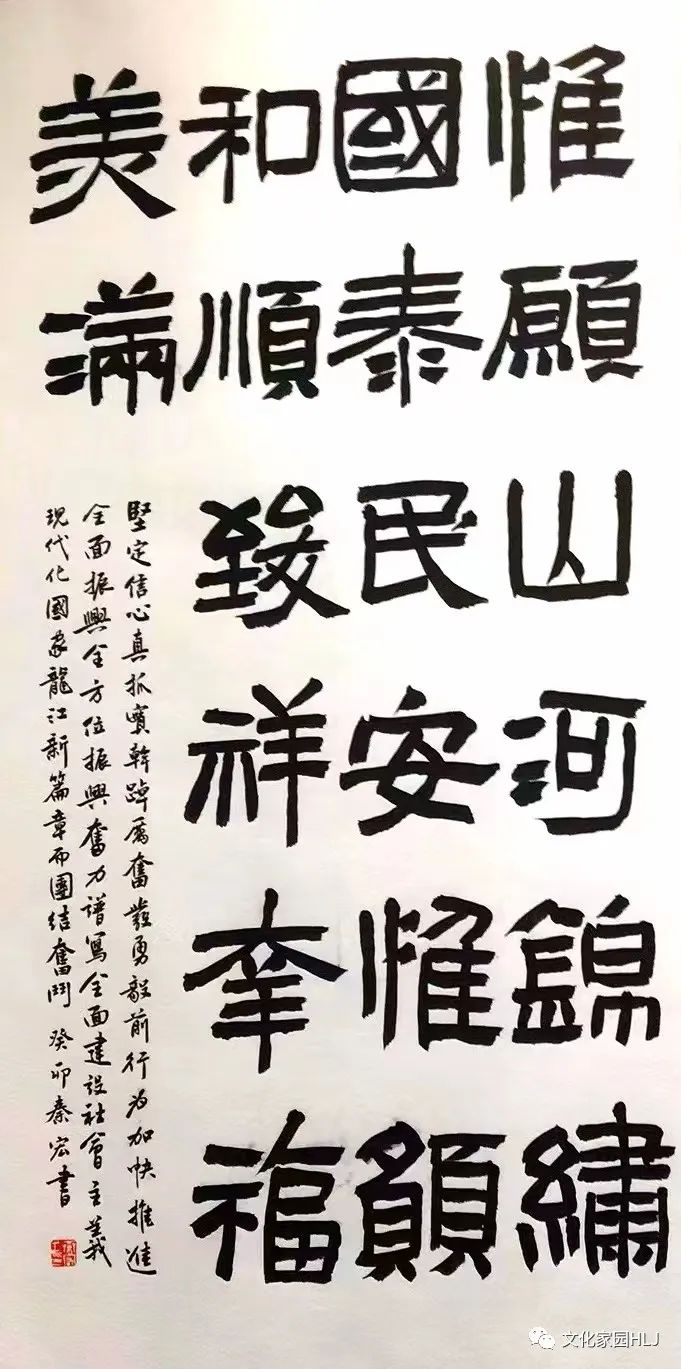 惟願山河錦繡
國泰民安惟願
和順致祥幸福
美滿
堅定信心真抓實幹踔厲奮發勇毅前行为加快推進
全面振興全方位振興奮力譜寫全面建設社會主義
現代化國家龍江新篇章而團结奮鬥 癸卯秦宏書
文化家园HLJ